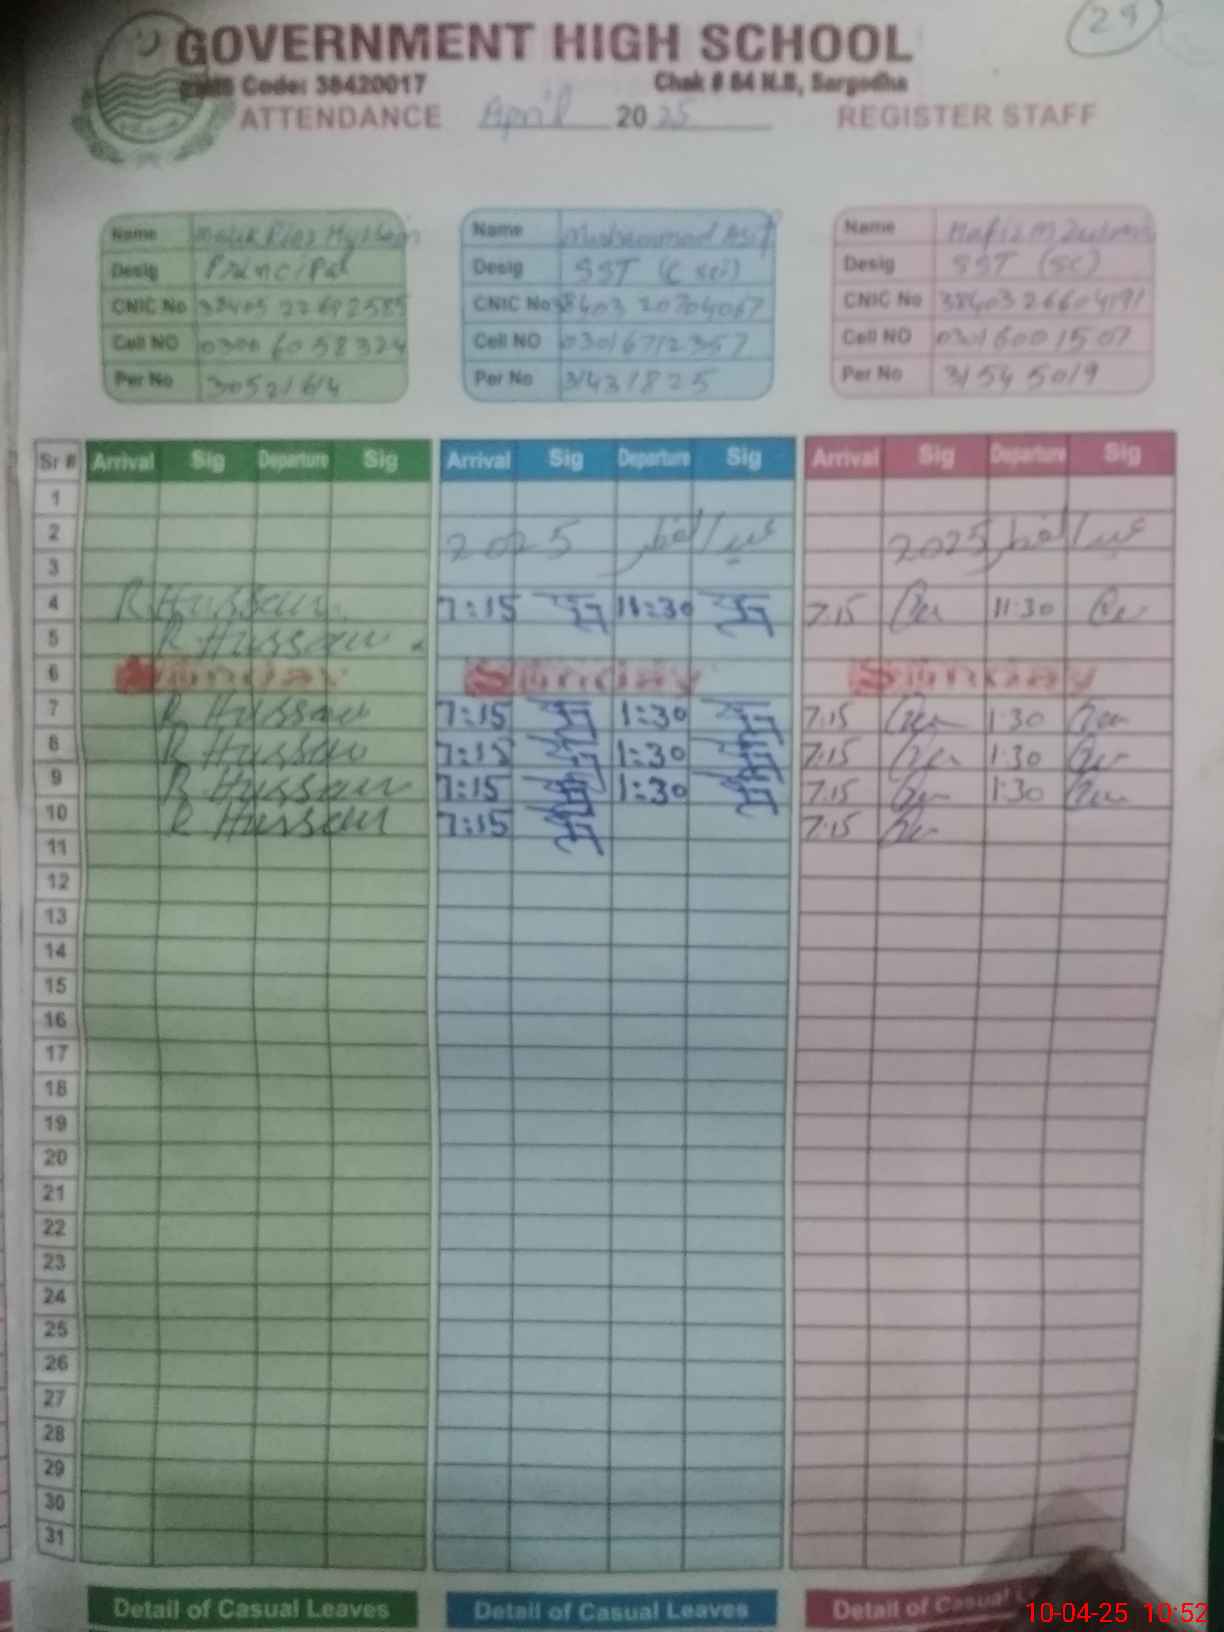 29
GOVERNMENT HIGH SCHOOL
Code: 38420017 Chak # 84 N.B, Sargodha
ATTENDANCE April 2025 REGISTER STAFF
Name Malik Riaz Hussain
Desig Principal
CNIC No 38405 22692585
Cell NO 0300 6058324
Per No 30521614
Name Muhammad Asif
Desig SST (C sci)
CNIC No 38403 20704067
Cell NO 03016712357
Per No 31431825
Name Hafiz M
Desig SST (SC)
CNIC No 38403 26604191
Cell NO 0301600 1507
Per No 3154 5019
Sr # Arrival Sig Departure Sig Arrival Sig Departure Sig Arrival Sig Departure Sig
1
2 عيد الفطر 2025 عيد الفطر 2025
3
4 R Hussain 7:15 11:30 7:15 11:30
5 R Hussain
6 Sunday Sunday Sunday
7 R Hussain 7:15 1:30 7:15 1:30
8 R Hussain 7:15 1:30 7:15 1:30
9 R Hussain 7:15 1:30 7:15 1:30
10 R Hussain 7:15 7:15
11
12
13
14
15
16
17
18
19
20
21
22
23
24
25
26
27
28
29
30
31
Detail of Casual Leaves Detail of Casual Leaves Detail of Casual
10-04-25 10:52